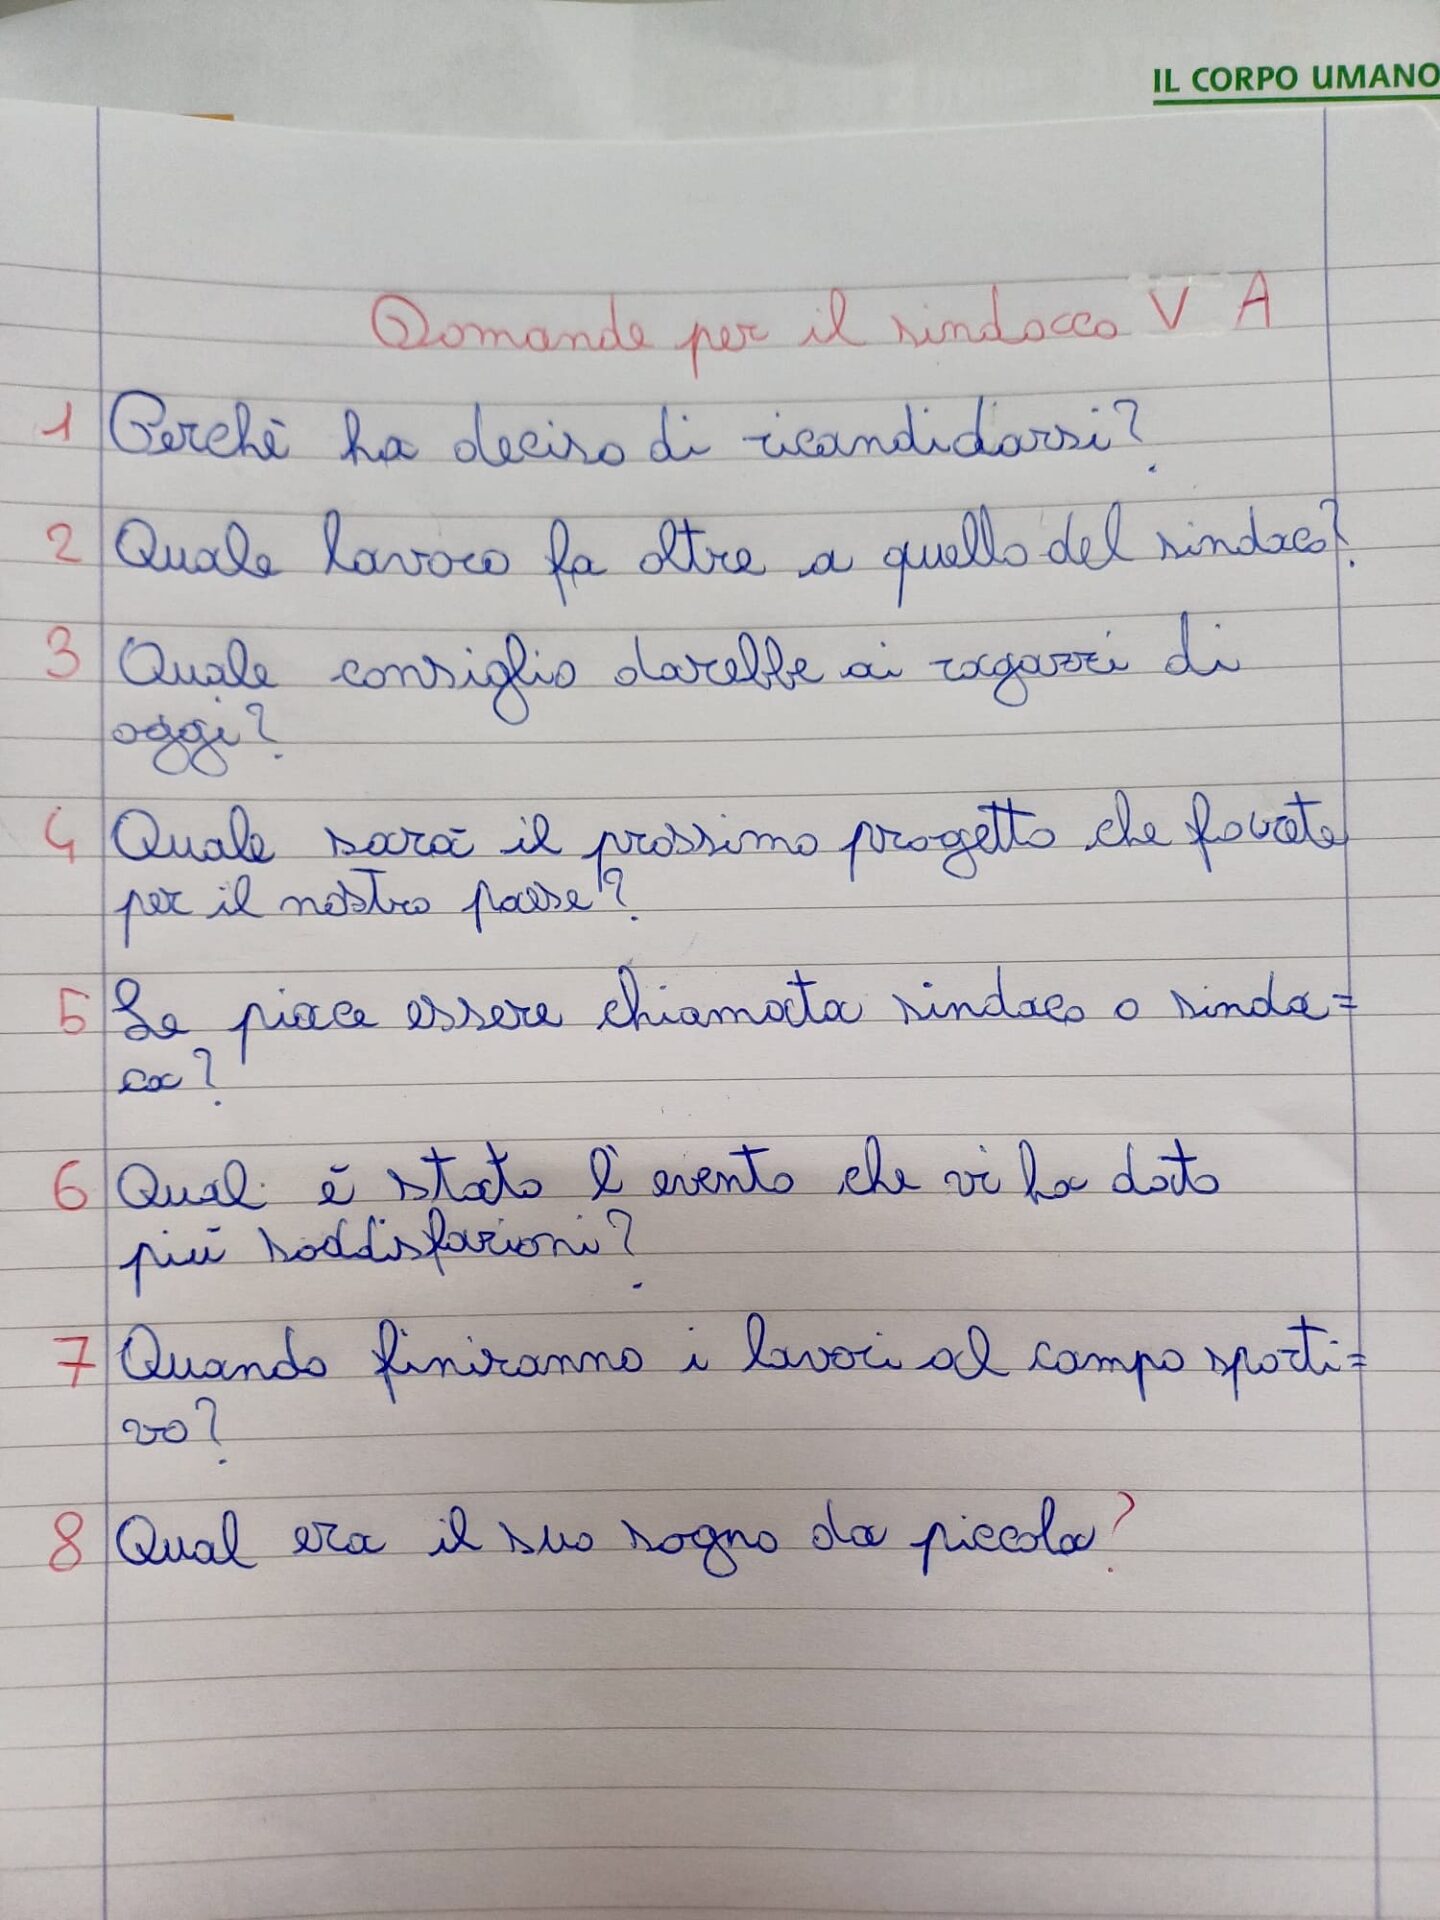 IL CORPO UMANO
Domande per il sindacco V A
1 Perchē ha deciso di ricandidarsi?
2 Quale lavoro fa oltre a quello del sindaco?
3 Quale consiglio darebbe ai ragazzi di
oggi?
4 Quale sarā il prossimo progetto che farete
per il nostro paese?
5 Le piace essere chiamata sindaco o sinda=
ca?
6 Qual ē stato l'evento che vi ha dato
piū soddisfazioni?
7 Quando finiranno i lavori al campo sporti=
vo?
8 Qual era il suo sogno da piccola?